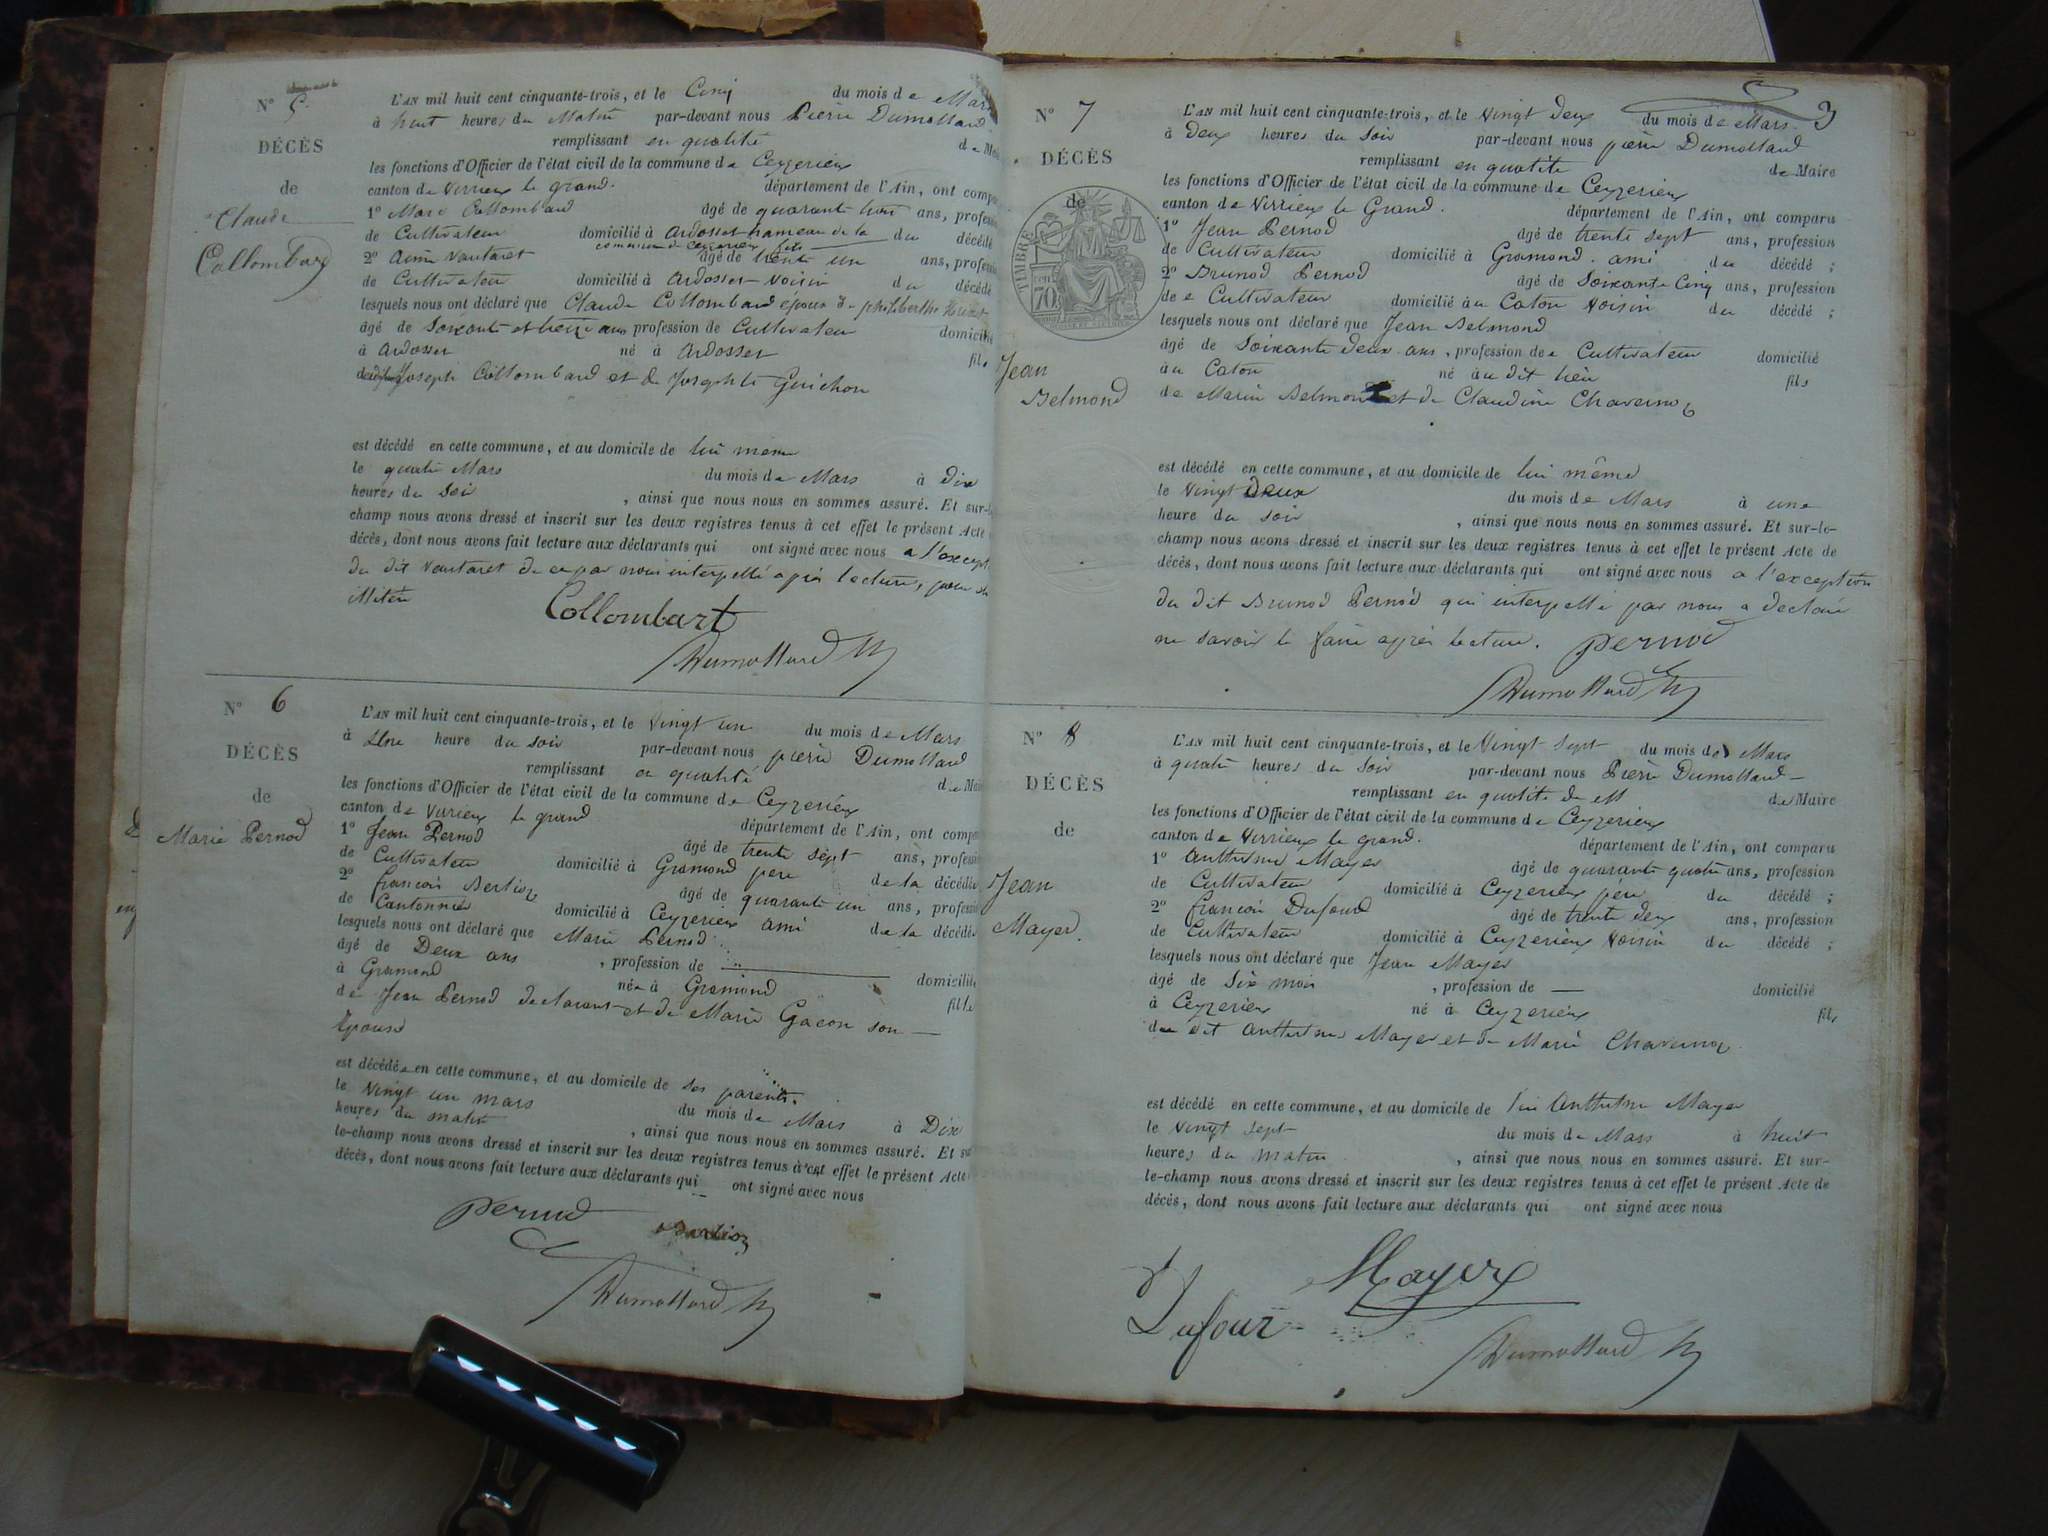 N° 5
DÉCÈS
de
Claude
Collombard
L'AN mil huit cent cinquante-trois, et le Cinq du mois de Mars
à huit heures du Matin par-devant nous Pierre Dumollard
remplissant en qualité de
les fonctions d'Officier de l'état civil de la commune de Ceyzerieux
canton de Virrieux le grand. département de l'Ain, ont
1° Marc Collombard âgé de quarante huit ans,
de Cultivateur domicilié à Ardosset hameau de la du décédé
commune de Ceyzerieux fils
2° Aimé Vautaret âgé de trente un ans,
de Cultivateur domicilié à Ardosset voisin du décédé
lesquels nous ont déclaré que Claude Collombard époux de philiberthe
âgé de Soixante et treize ans profession de Cultivateur
à Ardosset né à Ardosset fils
Joseph Collombard et de Josephte Guichon
est décédé en cette commune, et au domicile de lui même
le quatre Mars du mois de Mars à Dix
heures du Soir , ainsi que nous nous en sommes assuré. Et
champ nous avons dressé et inscrit sur les deux registres tenus à cet effet le présent Acte
décès, dont nous avons fait lecture aux déclarants qui ont signé avec nous a
du dit Vautaret de ce par nous interpellé après lecture, pour
illitéré
Collombart
Dumollard
N° 6
DÉCÈS
de
Marie Pernod
L'AN mil huit cent cinquante-trois, et le Vingt un du mois de Mars
à Une heure du soir par-devant nous pierre Dumollard
remplissant en qualité de
les fonctions d'Officier de l'état civil de la commune de Ceyzerieux
canton de Virieux le grand département de l'Ain, ont
1° Jean Pernod âgé de trente sept ans,
de Cultivateur domicilié à Gramond pere de la décédée
2° françois Berlioz âgé de quarante un ans,
de Cantonnier domicilié à Ceyzerieux ami de la décédée
lesquels nous ont déclaré que Marie Pernod
âgé de Deux ans , profession de domiciliée
à Gramond née à Gramond fille
de Jean Pernod declarant et de Marie Gacon son
Epouse
est décédée en cette commune, et au domicile de ses parents.
le Vingt un mars du mois de Mars à Dix
heures du matin , ainsi que nous nous en sommes assuré. Et
le-champ nous avons dressé et inscrit sur les deux registres tenus à cet effet le présent Acte
décès, dont nous avons fait lecture aux déclarants qui ont signé avec nous
pernod
Berlioz
Dumollard
3
N° 7
DÉCÈS
de
TIMBRE
70
Jean
Belmond
L'AN mil huit cent cinquante-trois, et le Vingt Deux du mois de Mars
à Deux heures du Soir par-devant nous pierre Dumollard
remplissant en qualité de Maire
les fonctions d'Officier de l'état civil de la commune de Ceyzerieux
canton de Virrieux le Grand. département de l'Ain, ont comparu
1° Jean Pernod âgé de trente sept ans, profession
de Cultivateur domicilié à Gramond. ami du décédé ;
2° Brunod Pernod âgé de Soixante Cinq ans, profession
de Cultivateur domicilié au Caton Voisin du décédé ;
lesquels nous ont déclaré que Jean Belmond
âgé de Soixante deux ans , profession de Cultivateur domicilié
au Caton né au dit lieu fils
de Marin Belmond et de Claudine Chavernoz
est décédé en cette commune, et au domicile de lui même
le Vingt Deux du mois de Mars à une
heure du soir , ainsi que nous nous en sommes assuré. Et sur-le-
champ nous avons dressé et inscrit sur les deux registres tenus à cet effet le présent Acte de
décès, dont nous avons fait lecture aux déclarants qui ont signé avec nous a l'exception
du dit Brunod Pernod qui interpellé par nous a declaré
ne savoir le faire après lecture. pernod
Dumollard
N° 8
DÉCÈS
de
Jean
Mayer.
L'AN mil huit cent cinquante-trois, et le Vingt Sept du mois de Mars
à quatre heures du Soir par-devant nous Pierre Dumollard
remplissant en qualité de M de Maire
les fonctions d'Officier de l'état civil de la commune de Ceyzerieux
canton de Virrieux le grand. département de l'Ain, ont comparu
1° Anthelme Mayer âgé de quarante quatre ans, profession
de Cultivateur domicilié à Ceyzerieux père du décédé ;
2° françois Dufourd âgé de trente deux ans, profession
de Cultivateur domicilié à Ceyzerieux Voisin du décédé ;
lesquels nous ont déclaré que Jean Mayer
âgé de Six mois , profession de — domicilié
à Ceyzerieux né à Ceyzerieux fils
du dit Anthelme Mayer et de Marie Chavernoz
est décédé en cette commune, et au domicile de lui Anthelme Mayer
le Vingt Sept du mois de Mars à huit
heures du matin , ainsi que nous nous en sommes assuré. Et sur-
le-champ nous avons dressé et inscrit sur les deux registres tenus à cet effet le présent Acte de
décès, dont nous avons fait lecture aux déclarants qui ont signé avec nous
Mayer
Dufour
Dumollard